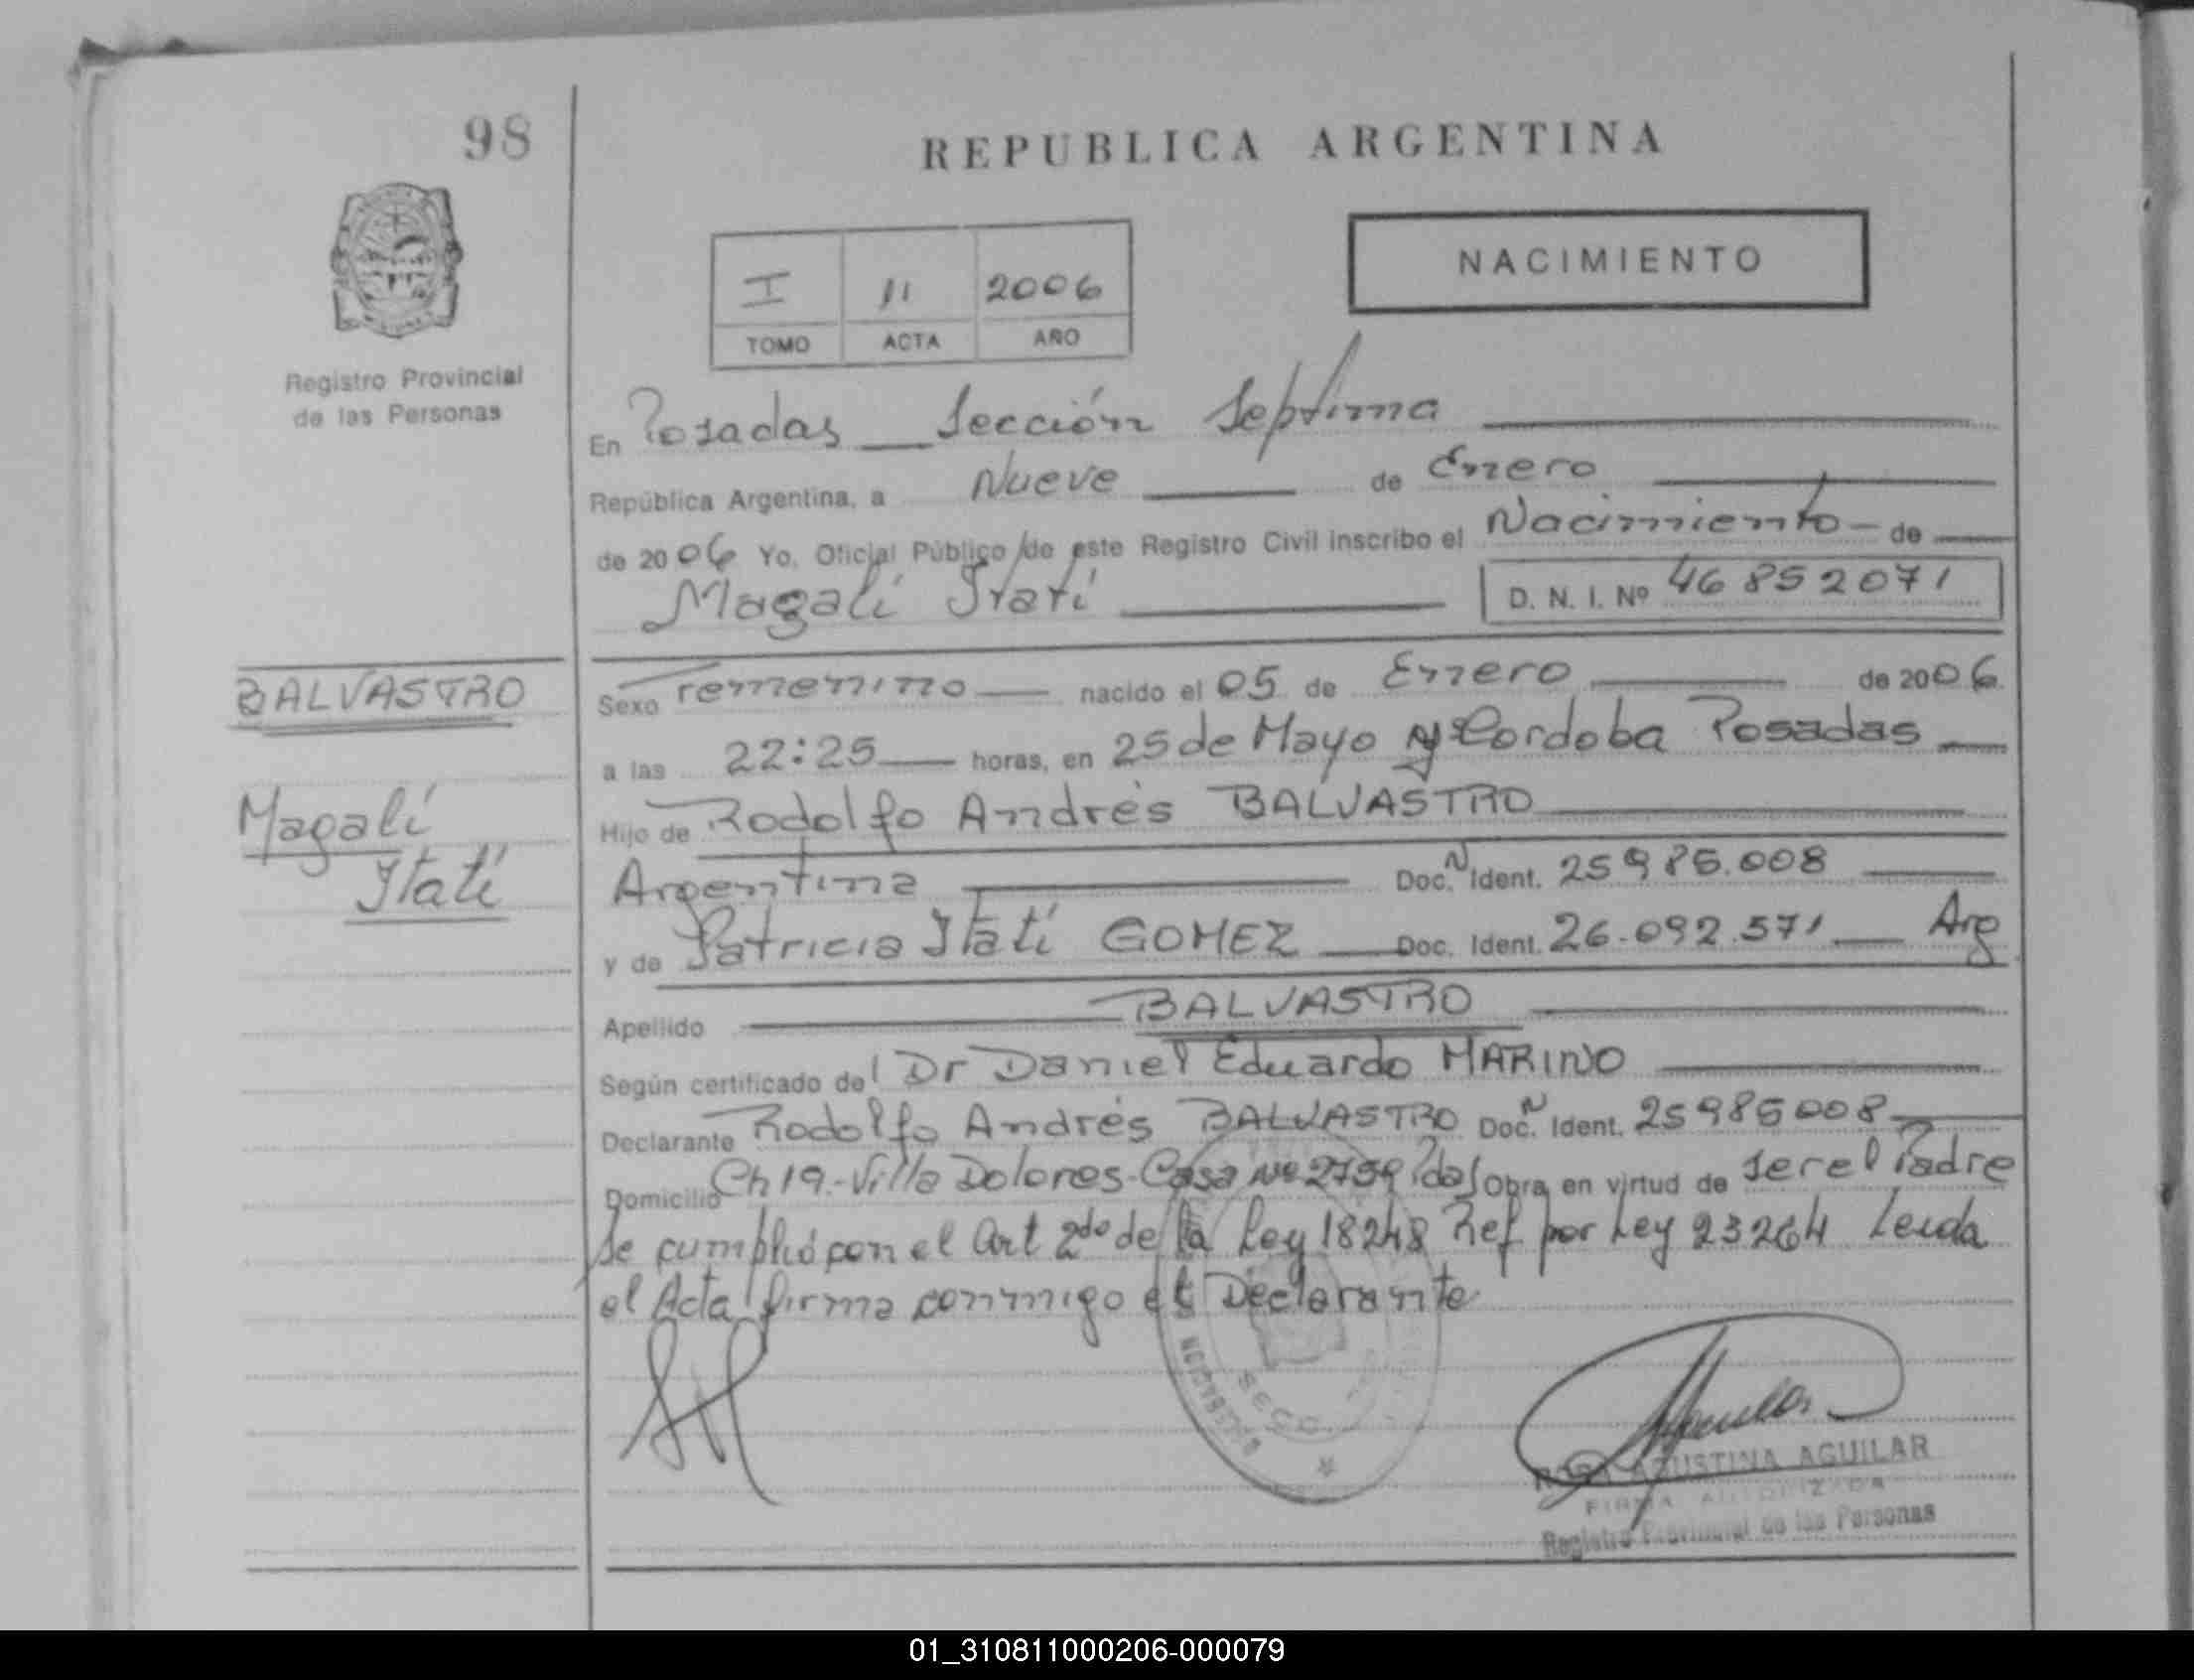 98
REPUBLICA ARGENTINA
NACIMIENTO
I 11 2006
TOMO ACTA AÑO
Registro Provincial
de las Personas
En Posadas Sección Septima
República Argentina, a Nueve de Enero
de 2006 Yo, Oficial Público de este Registro Civil inscribo el Nacimiento de
Magalí Itatí D. N. I. Nº 46852071
BALVASTRO
Magalí
Itatí
Sexo Femenino nacido el 05 de Enero de 2006
a las 22:25 horas, en 25 de Mayo y Cordoba Posadas
Hijo de Rodolfo Andrés BALVASTRO
Argentina Doc. N Ident. 25985.008
y de Patricia Itatí GOMEZ Doc. Ident. 26.092.571 Arg
Apellido BALVASTRO
Según certificado del Dr Daniel Eduardo MARINO
Declarante Rodolfo Andrés BALVASTRO Doc. N Ident. 25985008
Domicilio Ch 19.-Villa Dolores-Casa Nº 2759 Pdas Obra en virtud de ser el Padre
Se cumplió con el Art 2do de la Ley 18248 Ref por Ley 23264 Leida
el Acta firma conmigo el Declarante
SECC
ROSA AGUSTINA AGUILAR
FIRMA AUTORIZADA
Registro Provincial de las Personas
01_310811000206-000079